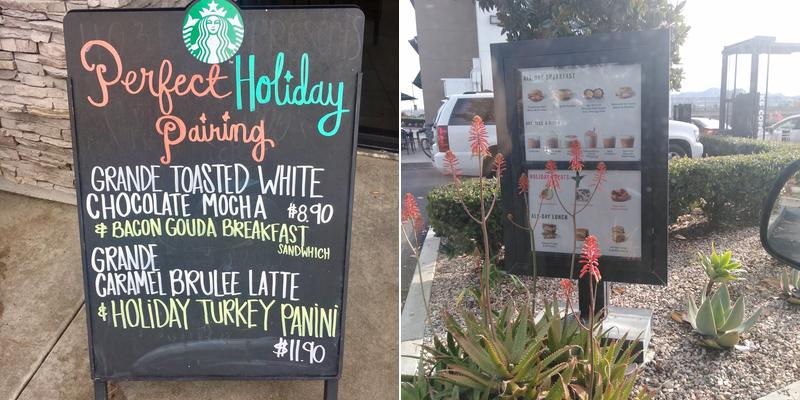 Perfect Holiday
Pairing
GRANDE TOASTED WHITE
CHOCOLATE MOCHA $8.90
& BACON GOUDA BREAKFAST
SANDWHICH
GRANDE
CARAMEL BRULEE LATTE
& HOLIDAY TURKEY PANINI
$11.90
ALL-DAY BREAKFAST
ALL-DAY LUNCH